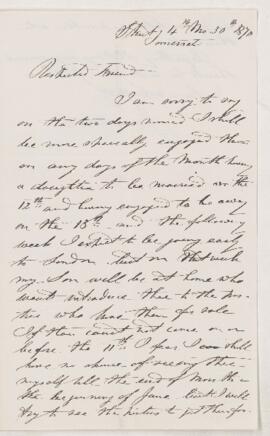 Street 4th Mo. 30th 1870
Somerset
Respected Friend
I am sorry to say
on the two days named I shall
be more specially engaged than
on any days of the Month having
a daughter to be married on the
12th and having engaged to be away
on the 13th and the following
week I expect to be going early
to London but in that week
my Son will be at home who
would introduce thee to the
who has them for sale
If thou canst not come on or
before the 10th I fear I shall
have no chance of seeing thee
myself till the end of Month or
the beginning of June but I will
try to see the